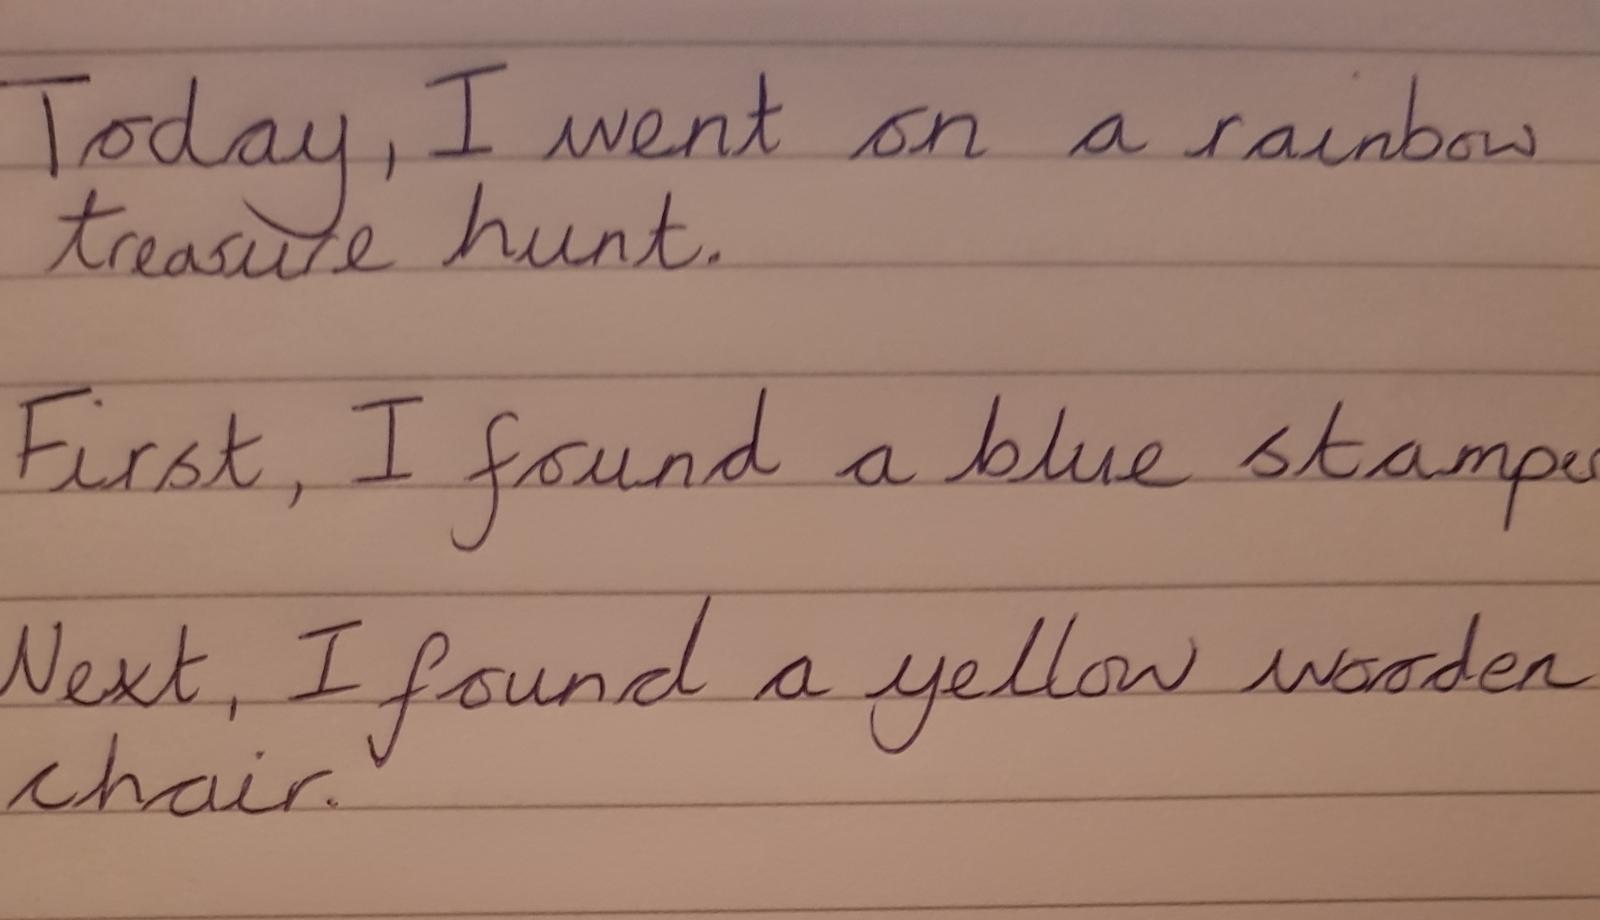 Today, I went on a rainbow
treasure hunt.
First, I found a blue
Next, I found a yellow wooden
chair.